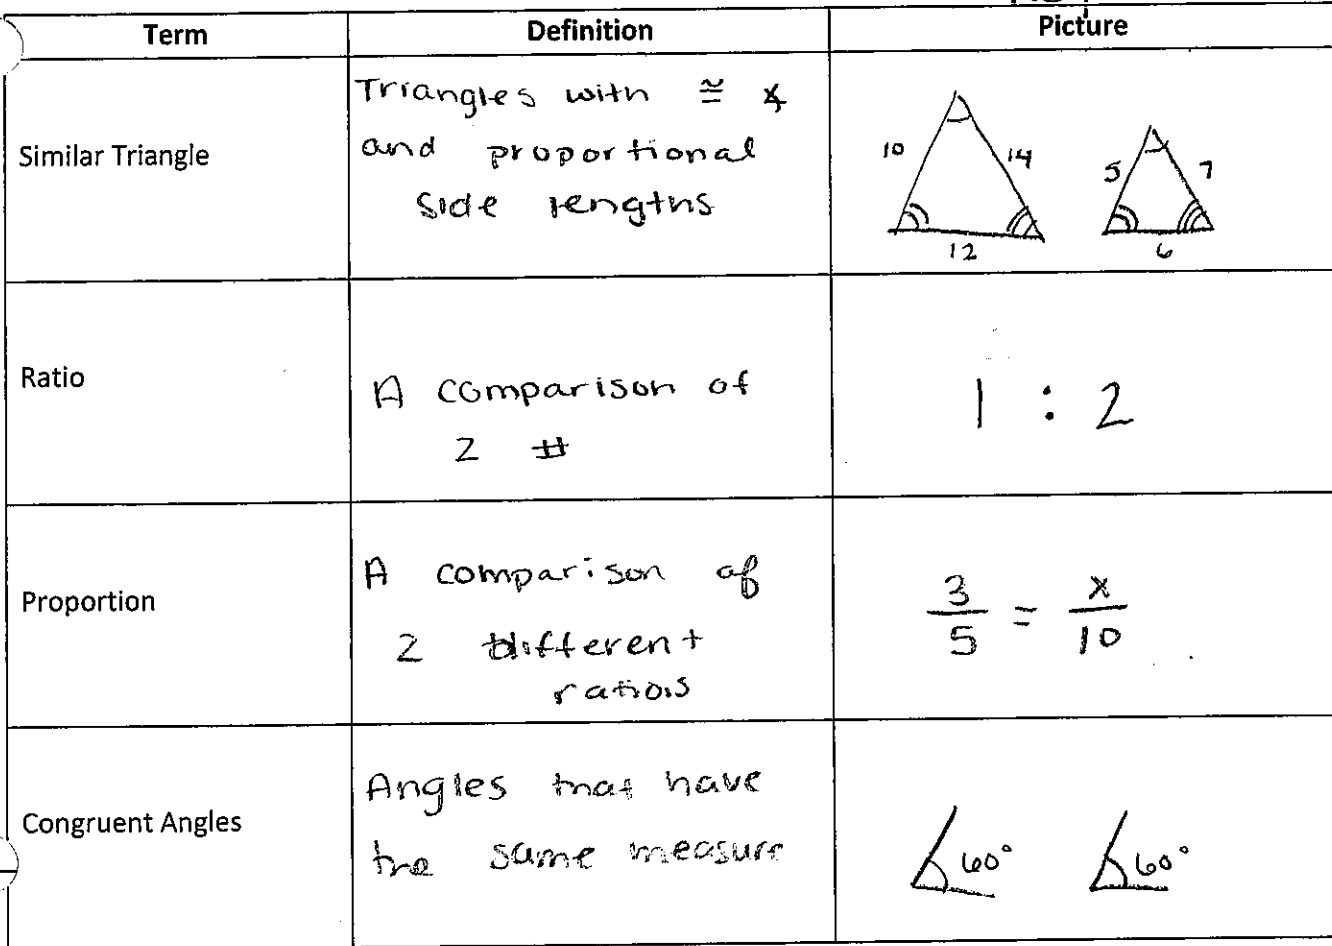 Term Definition Picture
Similar Triangle
Triangles with ≅ ∡
and proportional
side lengths
10 14 12
5 7 6
Ratio
A comparison of
2 #
1 : 2
Proportion
A comparison of
2 different
ratios
3/5 = x/10
Congruent Angles
Angles that have
the same measure
60° 60°